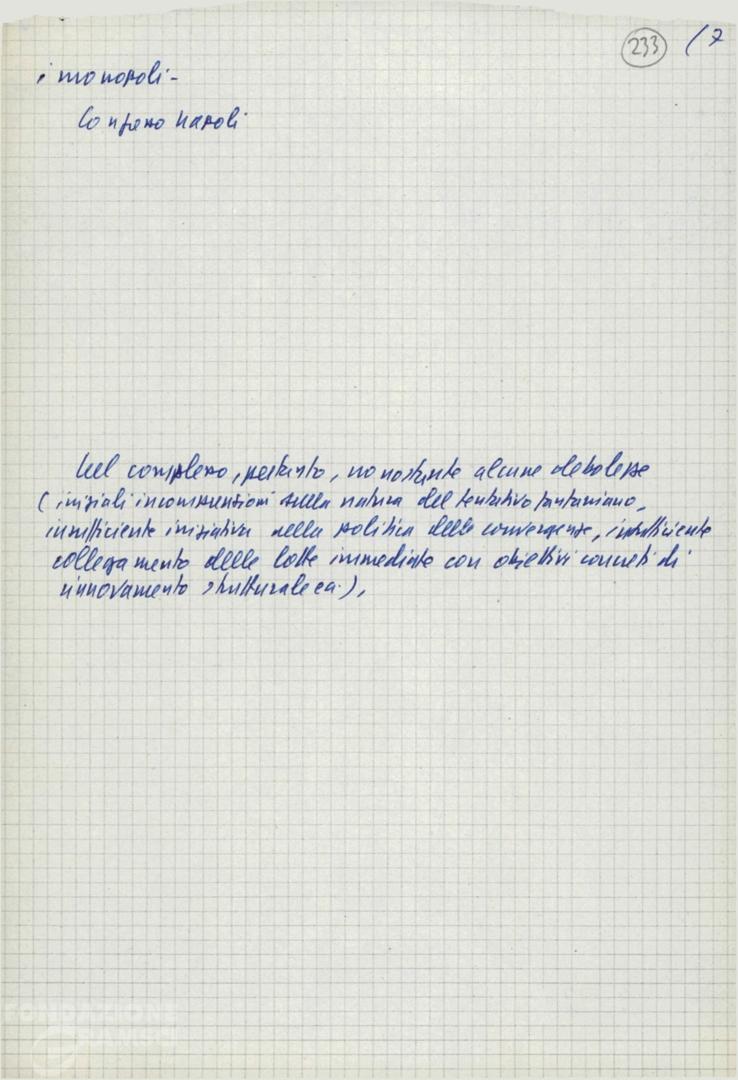 233 / 7
i monopoli -
Congresso Napoli
Nel complesso, pertanto, nonostante alcune debolezze
(iniziali incomprensioni sulla natura del tentativo fanfaniano,
insufficiente iniziativa nella politica delle convergenze, insufficiente
collegamento delle lotte immediate con obiettivi concreti di
rinnovamento strutturale ec.),
FONDAZIONE
GRAMSCI